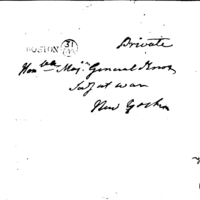 Private
BOSTON 31
Hon ble Maj r General Knox
Sec'y at war
New York